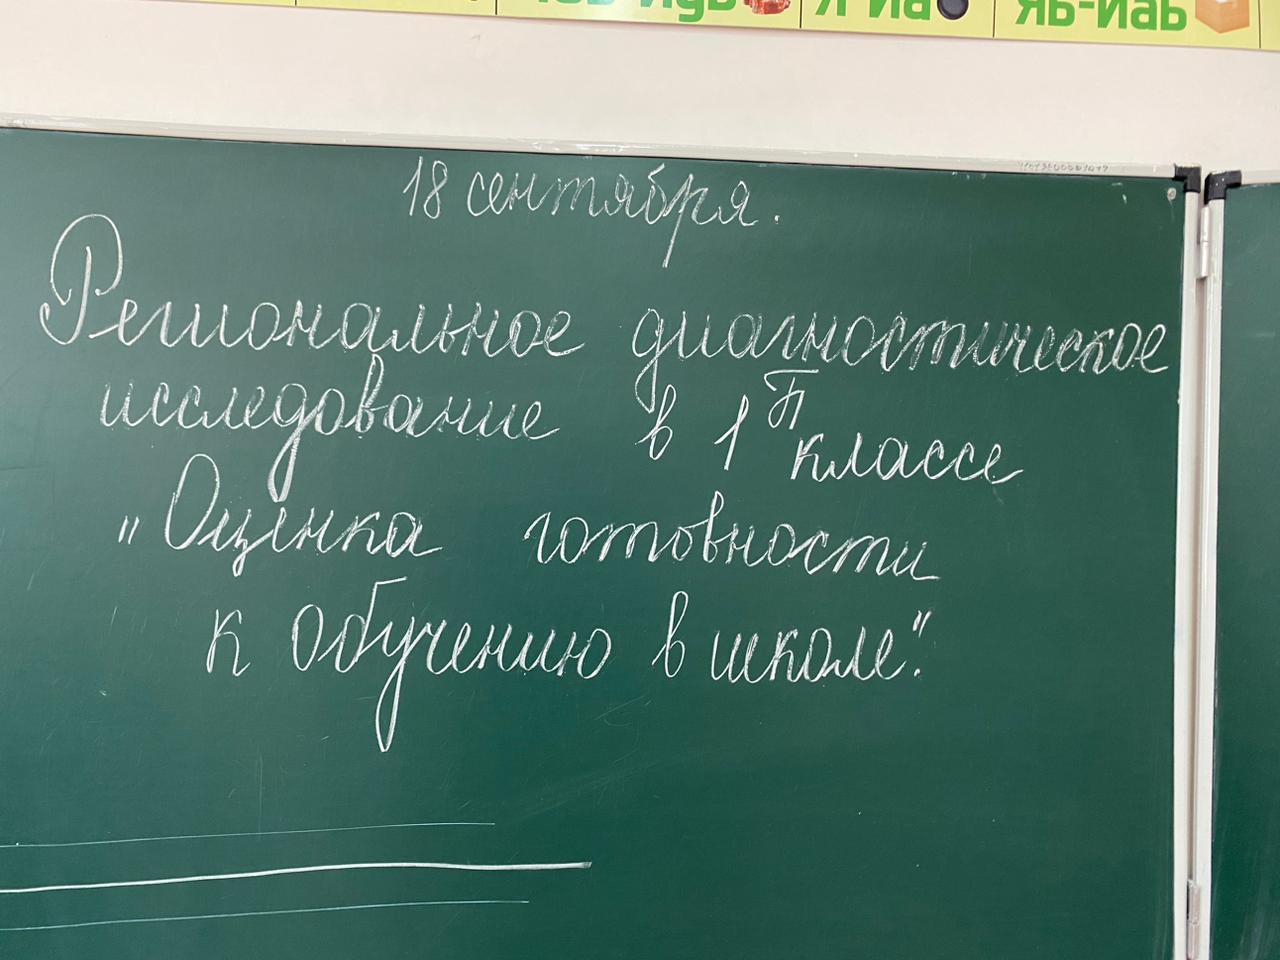 Я-йа
ЯБ-ЙАБ
18 сентября.
Региональное диагностическое
исследование в 1 П классе
„Оценка готовности
к обучению в школе".